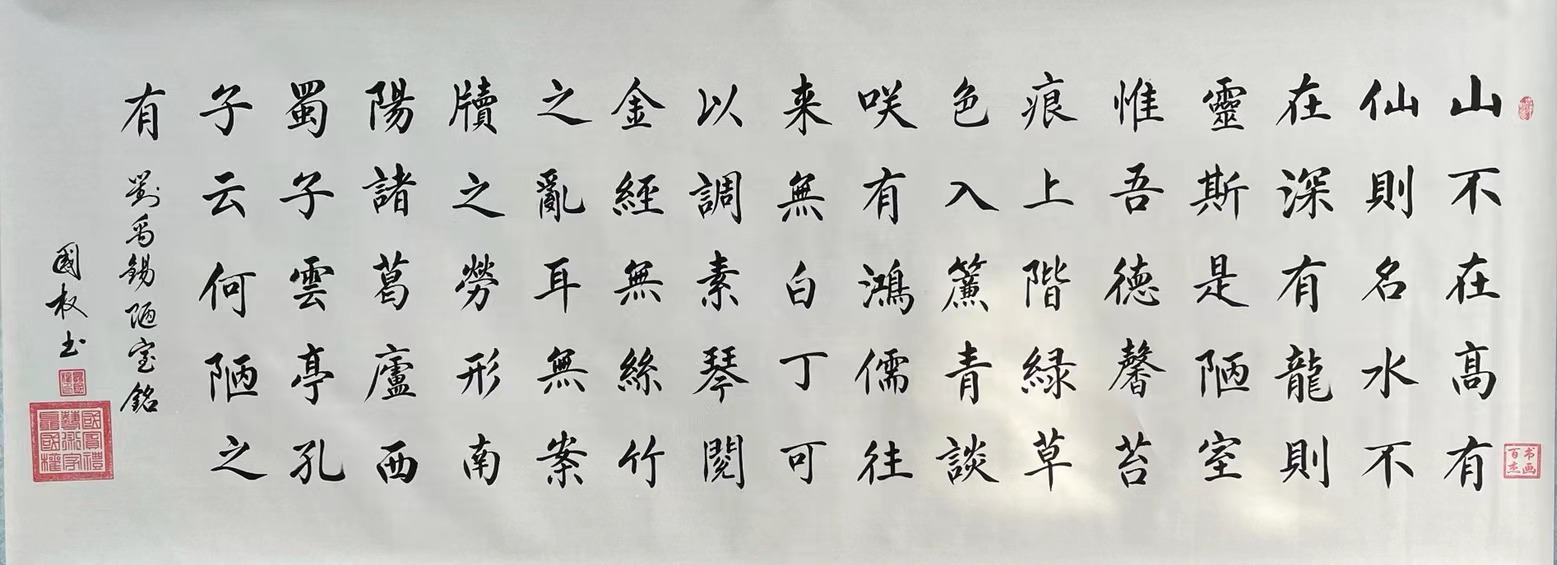 山不在高有
仙則名水不
在深有龍則
靈斯是陋室
惟吾德馨苔
痕上階緑草
色入簾青談
咲有鴻儒往
来無白丁可
以調素琴閱
金經無絲竹
之亂耳無案
牘之勞形南
陽諸葛廬西
蜀子雲亭孔
子云何陋之
有
劉禹錫陋室銘
國权书
书画
百杰